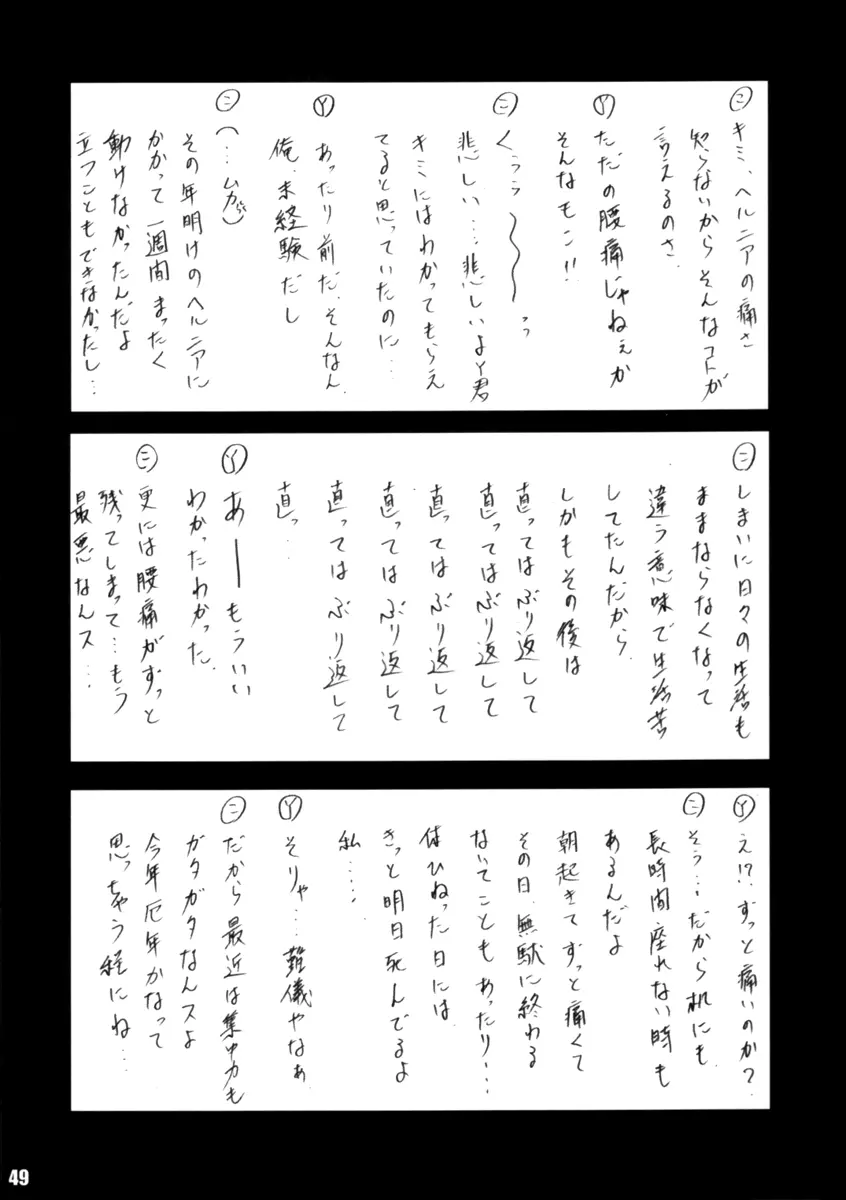 ㋥ キミ、ヘルニアの痛さ
知らないからそんなコトが
言えるのさ.
Ⓨ ただの腰痛じゃねぇか
そんなもこ!!
㋥ くぅぅ〜〜〜っ
悲しい…悲しいよY君
キミにはわかってもらえ
てると思っていたのに…
Ⓨ あったり前だ.そんなん.
俺.未経験だし
㋥ (…ムカッ)
その年明けのヘルニアに
かかって一週間まったく
動けなかったんだよ
立つこともできなかったし…
㋥ しまいに日々の生活も
ままならなくなって
違う意味で生活苦
してたんだから.
しかもその後は
直ってはぶり返して
直ってはぶり返して
直ってはぶり返して
直ってはぶり返して
直ってはぶり返して
直っ…
Ⓨ あーーもういい
わかったわかった.
㋥ 更には腰痛がずっと
残ってしまって…もう
最悪なんス…
Ⓨ え!?ずっと痛いのか?
㋥ そう…だから机にも
長時間座れない時も
あるんだよ
朝起きてずっと痛くて
その日.無駄に終わる
ないてこともあったり…
体ひねった日には
きっと明日死んでるよ
私……
Ⓨ そりゃ…難儀やなぁ
㋥ だから最近は集中力も
ガタガタなんスよ
今年厄年かなって
思っちゃう程にね…
49